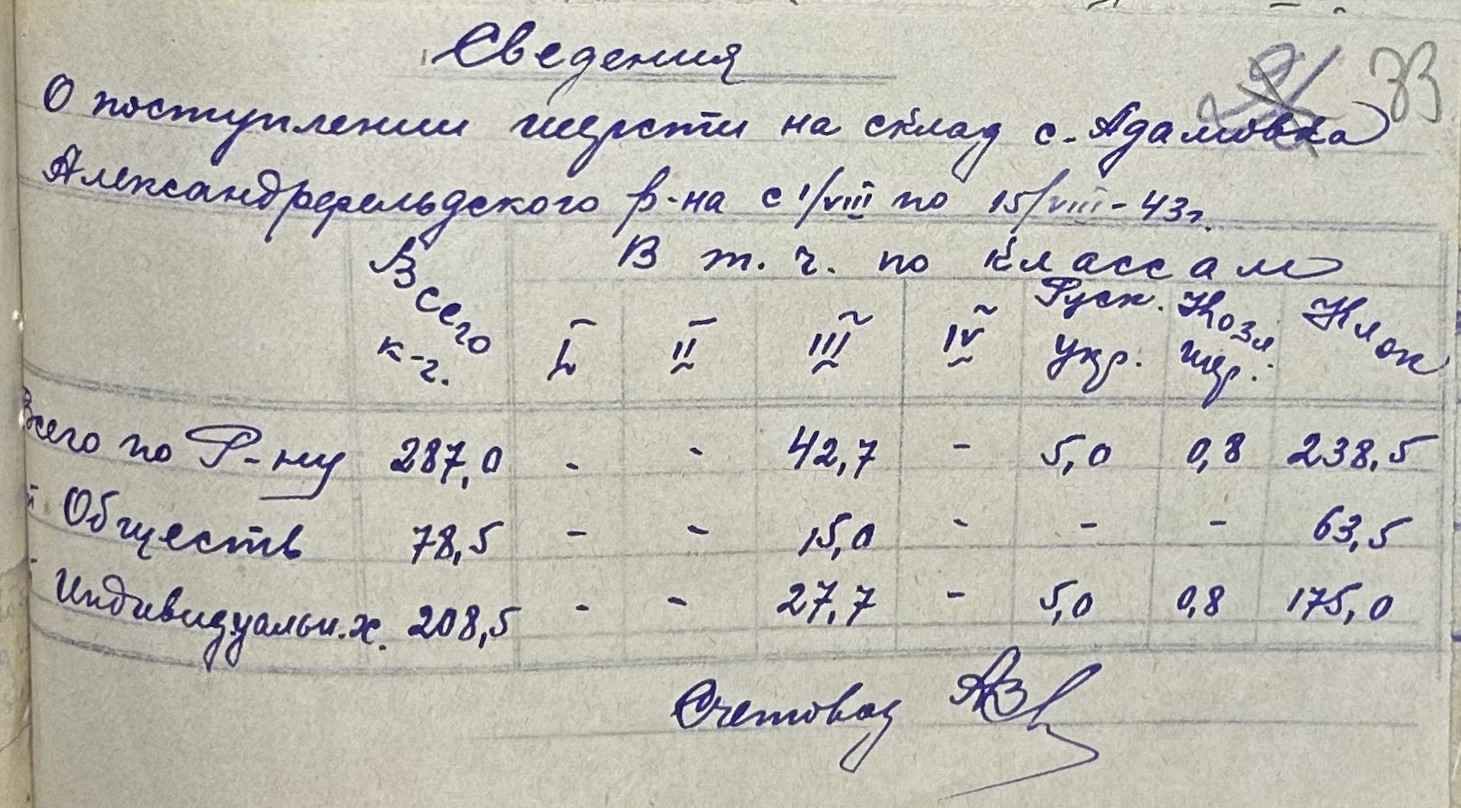 Сведения
33
О поступлении шерсти на склад с. Адамовка
Александрфельдского р-на с 1/VIII по 15/VIII-43г.
Всего к-г. В т. ч. по классам
I II III IV Руск. укр. Козл. шер. Клок
Всего по Р-ну 287,0 - - 42,7 - 5,0 0,8 238,5
Обществ 78,5 - - 15,0 - - - 63,5
Индивидуальн. х. 208,5 - - 27,7 - 5,0 0,8 175,0
Счетовод